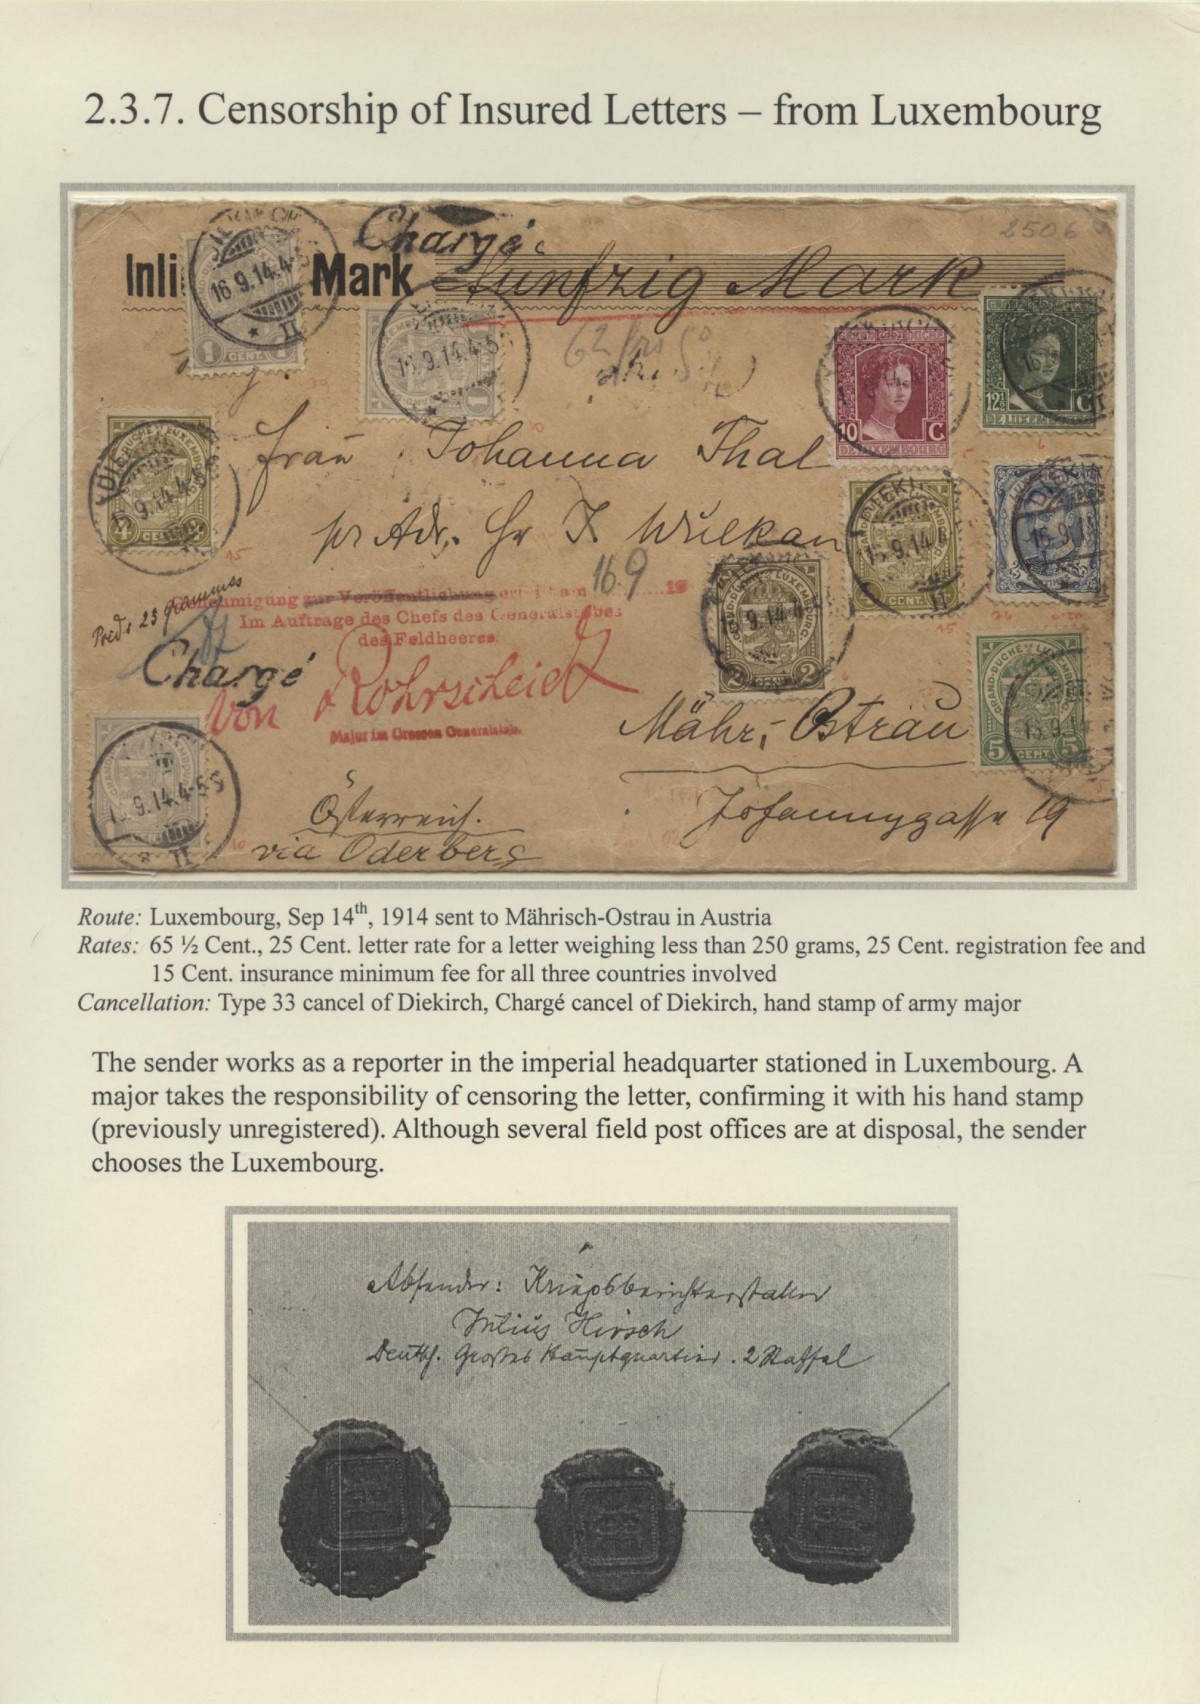 2.3.7. Censorship of Insured Letters – from Luxembourg
Chargé
2506
Inli Mark fünfzig Mark
16.9.14.4-5
II
1 CENT. 1
16.9.14.4-5
1
10 C
DE LUXEMBOURG
12½ C
DE LUXEMBOURG
Frau Johanna Thal
pr Adr. Hr K Wilkan
4 CENT
16.9.14.4
II
25
16.9
Preds 23 grammes
Genehmigung zur Veröffentlichung erteilt am 16.9 19
Im Auftrage des Chefs des Generalstabes
des Feldheeres.
Chargé
von Rohrscheidt
Major im Grossen Generalstab.
GRAND-DUCHÉ DE LUXEMBOURG
2 CENT. 2
GRAND-DUCHÉ DE LUXEMBOURG
5 CENT. 5
Mähr.-Ostrau
9.14.4-5
II
Österreich.
via Oderberg
Johannygasse 19
Route: Luxembourg, Sep 14th, 1914 sent to Mährisch-Ostrau in Austria
Rates: 65 ½ Cent., 25 Cent. letter rate for a letter weighing less than 250 grams, 25 Cent. registration fee and
15 Cent. insurance minimum fee for all three countries involved
Cancellation: Type 33 cancel of Diekirch, Chargé cancel of Diekirch, hand stamp of army major
The sender works as a reporter in the imperial headquarter stationed in Luxembourg. A
major takes the responsibility of censoring the letter, confirming it with his hand stamp
(previously unregistered). Although several field post offices are at disposal, the sender
chooses the Luxembourg.
Absender: Kriegsberichterstatter
Julius Hirsch
Deutsch. Großes Hauptquartier. 2 Staffel